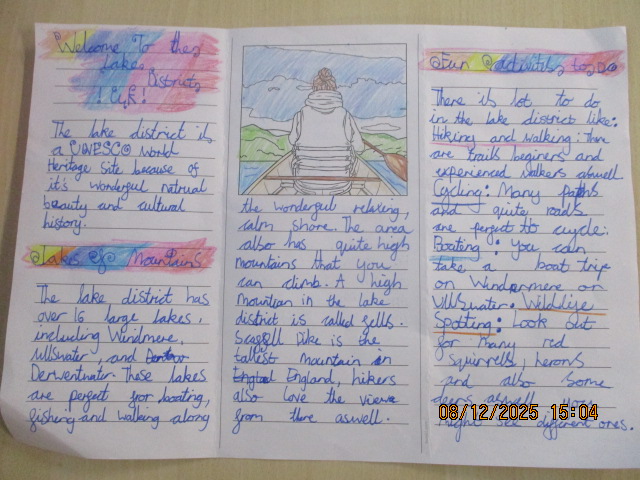 Welcome To they
Lakes
Districts
! CLR!
The lake district is
a UNESCO world
Heritage Site because of
it's wonderful natrual
beauty and cultural
history.
Lakes & Mountains
The lake district has
over 16 large lakes,
including Windmere,
Ullswater, and
Derwentwater. These lakes
are perfect for boating,
fishing and walking along
the wonderful relaxing,
calm shore. The area
also has quite high
mountains that you
can climb. A high
Mountian in the lake
district is called fells.
Scafell Pike is the
tallest mountain in
England, hikers
also love the views
from there aswell.
Fun activities to do
There is lot to do
in the lake district like:
Hiking and walking: There
are trails beginers and
experienced walkers aswell.
Cycling: Many paths
and quite roads
are perfect to cycle.
Boating: You can
take a boat trip
on Windermere or
Ullswater. Wildlife
Spotting: Look out
for many red
squirrels, herons
and also some
deers aswell you
might see different ones.
08/12/2025 15:04